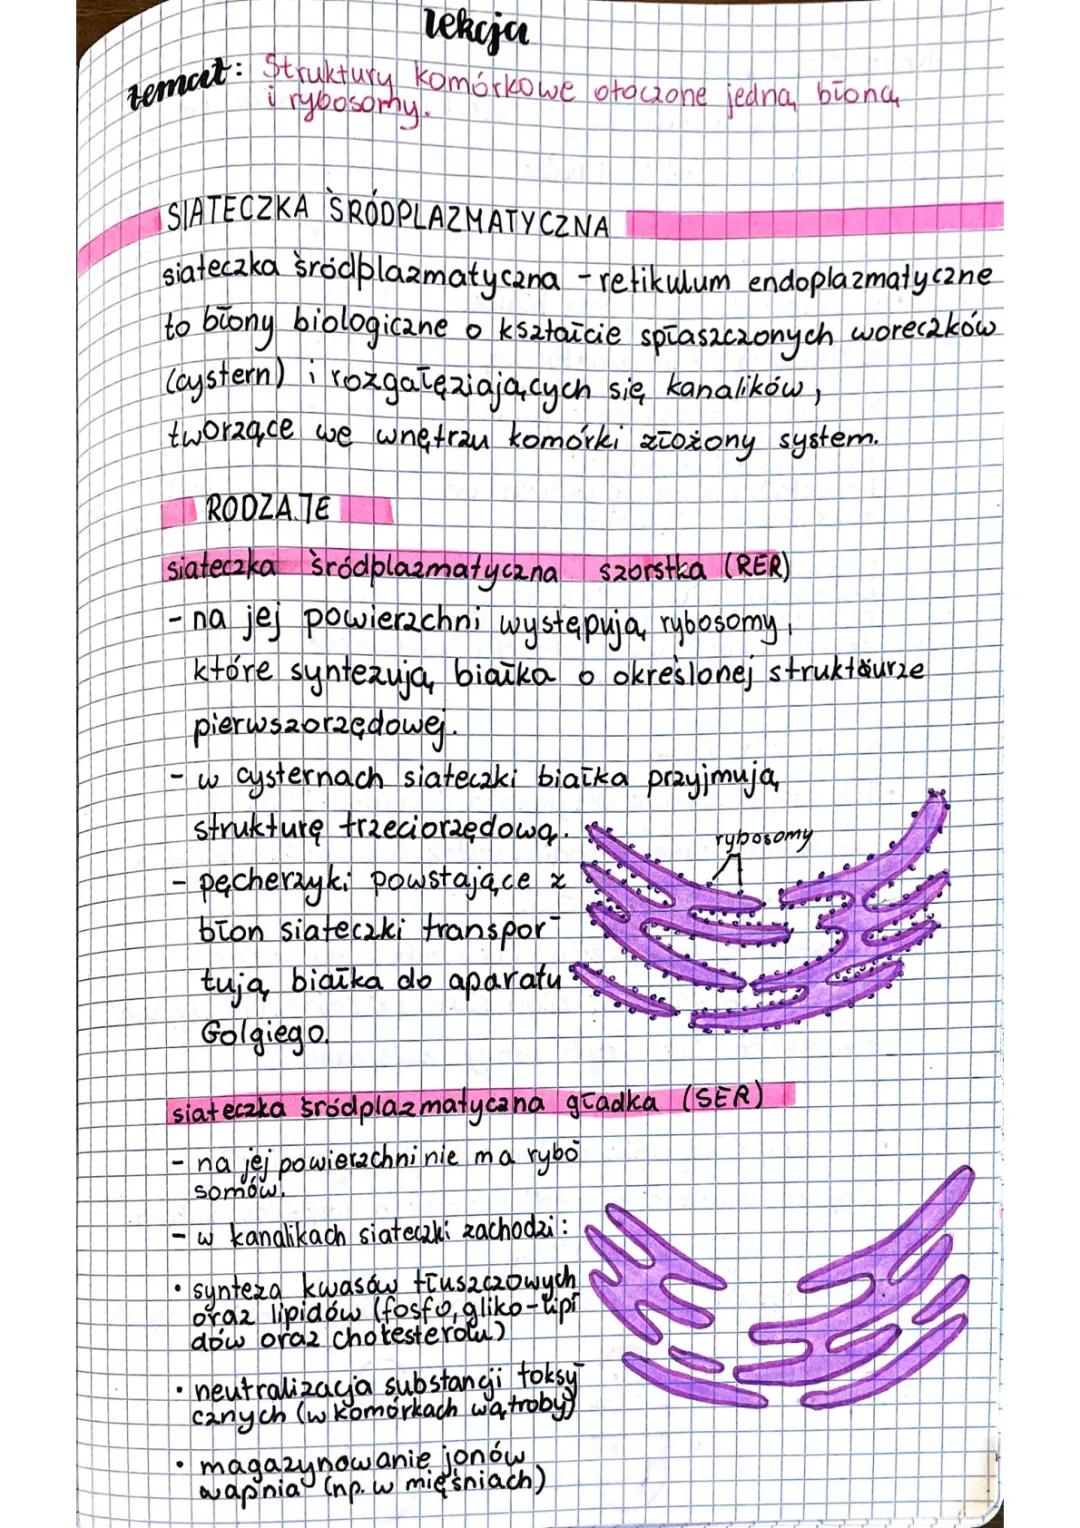 lekcja
temat: Struktury komórkowe otoczone jedną błoną
i rybosomy.
SIATECZKA ŚRÓDPLAZMATYCZNA
siateczka śródplazmatyczna - retikulum endoplazmatyczne
to błony biologiczne o kształcie spłaszczonych woreczków
(cystern) i rozgałęziających się kanalików,
tworzące we wnętrzu komórki złożony system.
RODZAJE
siateczka śródplazmatyczna szorstka (RER)
- na jej powierzchni występują rybosomy,
które syntezują białka o określonej struktaurze
pierwszorzędowej.
- w cysternach siateczki białka przyjmują
strukturę trzeciorzędową.
rybosomy
- pęcherzyki powstające z
błon siateczki transpor-
tują białka do aparatu
Golgiego.
siateczka śródplazmatyczna gładka (SER)
- na jej powierzchni nie ma rybo-
somów.
- w kanalikach siateczki zachodzi:
• synteza kwasów tłuszczowych
oraz lipidów (fosfo, gliko-lipi-
dów oraz cholesterolu)
• neutralizacja substancji toksy-
cznych (w komórkach wątroby)
• magazynowanie jonów
wapnia (np. w mięśniach)